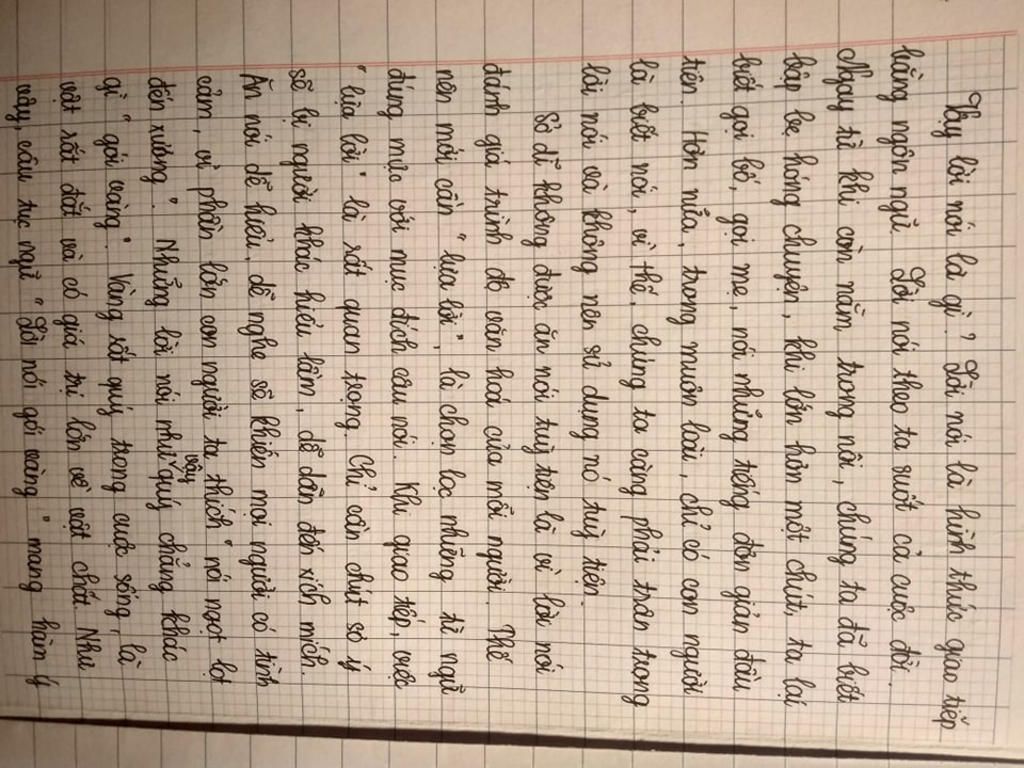 Vậy lời nói là gì? Lời nói là hình thức giao tiếp
bằng ngôn ngữ. Lời nói theo ta suốt cả cuộc đời.
Ngay từ khi còn nằm trong nôi, chúng ta đã biết
bập bẹ hóng chuyện, khi lớn hơn một chút, ta lại
biết gọi bố, gọi mẹ, nói những tiếng đơn giản đầu
tiên. Hơn nữa, trong muôn loài, chỉ có con người
là biết nói, vì thế, chúng ta càng phải trân trọng
lời nói và không nên sử dụng nó tuỳ tiện.
Sở dĩ không được ăn nói tuỳ tiện là vì lời nói
đánh giá trình độ văn hoá của mỗi người. Thế
nên mới cần "lựa lời", là chọn lọc những từ ngữ
đúng mực với mục đích câu nói. Khi giao tiếp, việc
"lựa lời" là rất quan trọng. Chỉ cần chút sơ ý
sẽ bị người khác hiểu lầm, dễ dẫn đến xích mích.
Ăn nói dễ hiểu, dễ nghe sẽ khiến mọi người có tình
cảm, vì phần lớn con người ta thích "nói ngọt lọt
đến xương". Những lời nói như vậy quý chẳng khác
gì "gói vàng". Vàng rất quý trong cuộc sống, là
vật rất đắt và có giá trị lớn về vật chất. Như
vậy, câu tục ngữ "Lời nói gói vàng" mang hàm ý